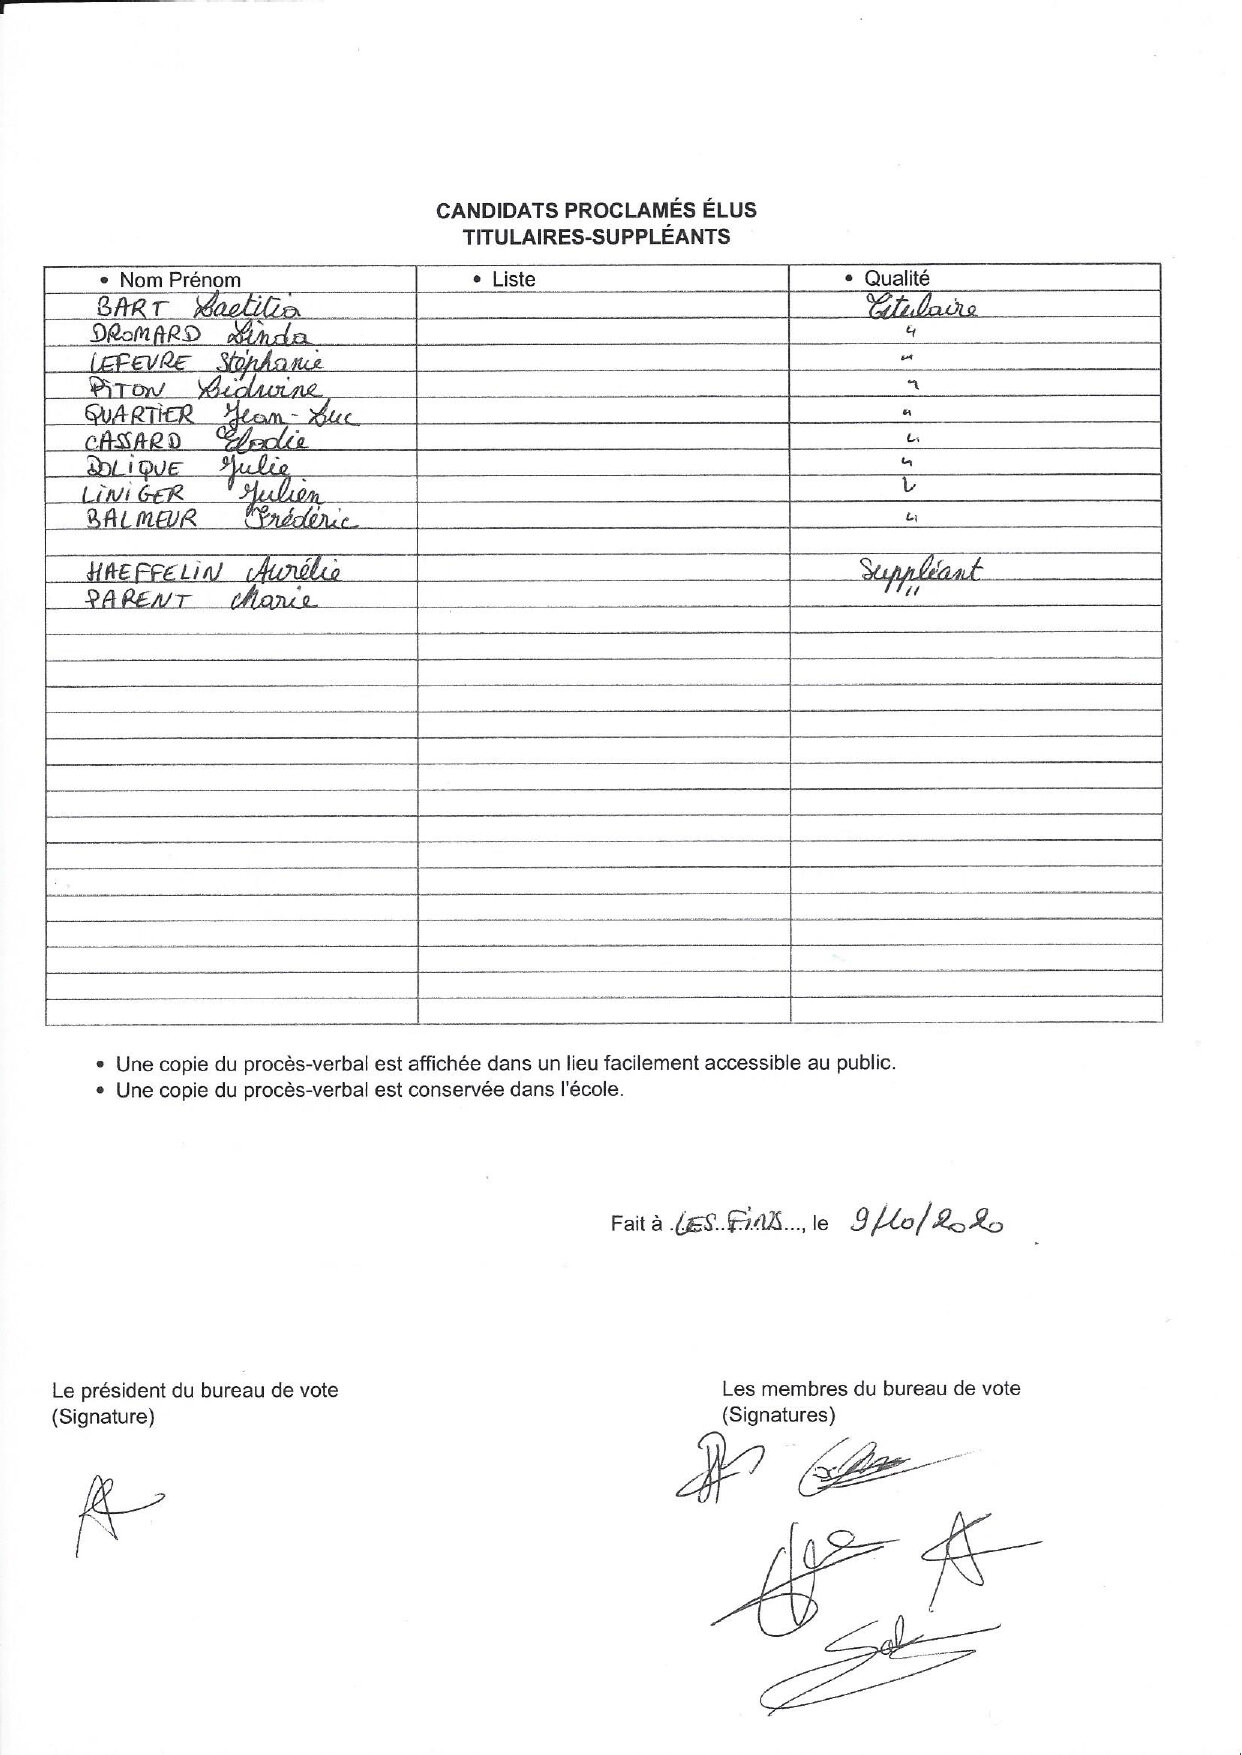 CANDIDATS PROCLAMÉS ÉLUS
TITULAIRES-SUPPLÉANTS
• Nom Prénom • Liste • Qualité
BART Laetitia Titulaire
DROMARD Linda "
LEFEVRE Stéphanie "
PITON Lidwine "
QUARTIER Jean-Luc "
CASSARD Elodie "
DOLIQUE Julie "
LINIGER Julien "
BALMEUR Frédéric "
HAEFFELIN Aurélie Suppléant
PARENT Marie "
• Une copie du procès-verbal est affichée dans un lieu facilement accessible au public.
• Une copie du procès-verbal est conservée dans l'école.
Fait à LES FINS, le 9/10/2020
Le président du bureau de vote Les membres du bureau de vote
(Signature) (Signatures)